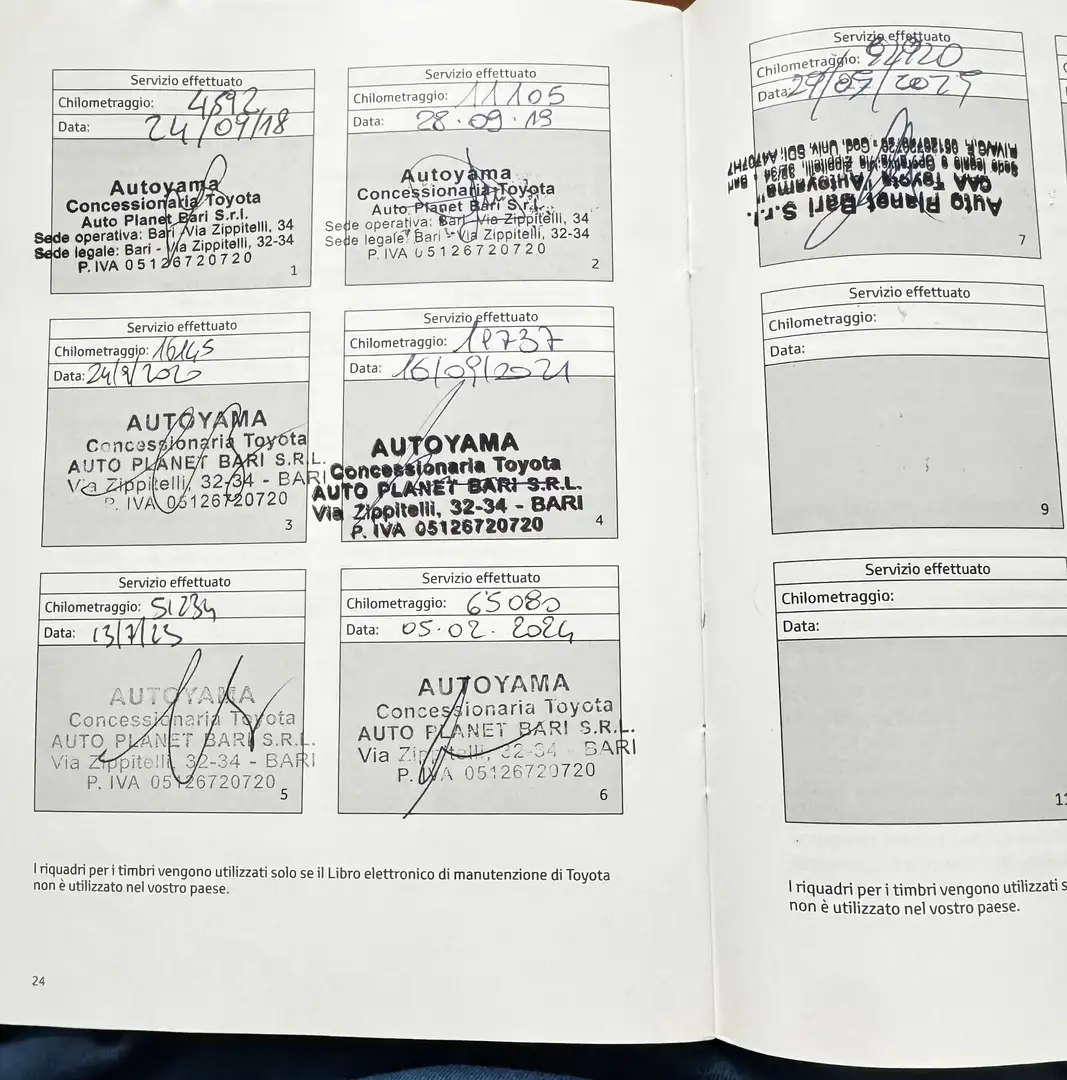 Servizio effettuato
Chilometraggio: 4592
Data: 24/09/18
Autoyama
Concessionaria Toyota
Auto Planet Bari S.r.l.
Sede operativa: Bari Via Zippitelli, 34
Sede legale: Bari - Via Zippitelli, 32-34
P. IVA 05126720720
1
Servizio effettuato
Chilometraggio: 11105
Data: 28.09.19
Autoyama
Concessionaria Toyota
Auto Planet Bari S.r.l.
Sede operativa: Bari Via Zippitelli, 34
Sede legale: Bari - Via Zippitelli, 32-34
P. IVA 05126720720
2
Servizio effettuato
Chilometraggio: 16145
Data: 24/9/2020
AUTOYAMA
Concessionaria Toyota
AUTO PLANET BARI S.R.L.
Via Zippitelli, 32-34 - BARI
P. IVA 05126720720
3
Servizio effettuato
Chilometraggio:
Data: 16/09/2021
AUTOYAMA
Concessionaria Toyota
AUTO PLANET BARI S.R.L.
Via Zippitelli, 32-34 - BARI
P. IVA 05126720720
4
Servizio effettuato
Chilometraggio: 51234
Data: 13/7/23
AUTOYAMA
Concessionaria Toyota
AUTO PLANET BARI S.R.L.
Via Zippitelli, 32-34 - BARI
P. IVA 05126720720
5
Servizio effettuato
Chilometraggio: 65080
Data: 05.02.2024
AUTOYAMA
Concessionaria Toyota
AUTO PLANET BARI S.R.L.
Via Zippitelli, 32-34 - BARI
P. IVA 05126720720
6
I riquadri per i timbri vengono utilizzati solo se il Libro elettronico di manutenzione di Toyota
non è utilizzato nel vostro paese.
24
Servizio effettuato
Chilometraggio:
Data:
Auto Planet Bari S.r.l.
CAA Toyota "Autoyama"
Sede legale e Operativa: Via Zippitelli, 32/34 - Bari
P.IVA/C.F. 05126720720 - Cod. Univ. SDI: A4707H7
7
Servizio effettuato
Chilometraggio:
Data:
9
Servizio effettuato
Chilometraggio:
Data:
11
I riquadri per i timbri vengono utilizzati s
non è utilizzato nel vostro paese.